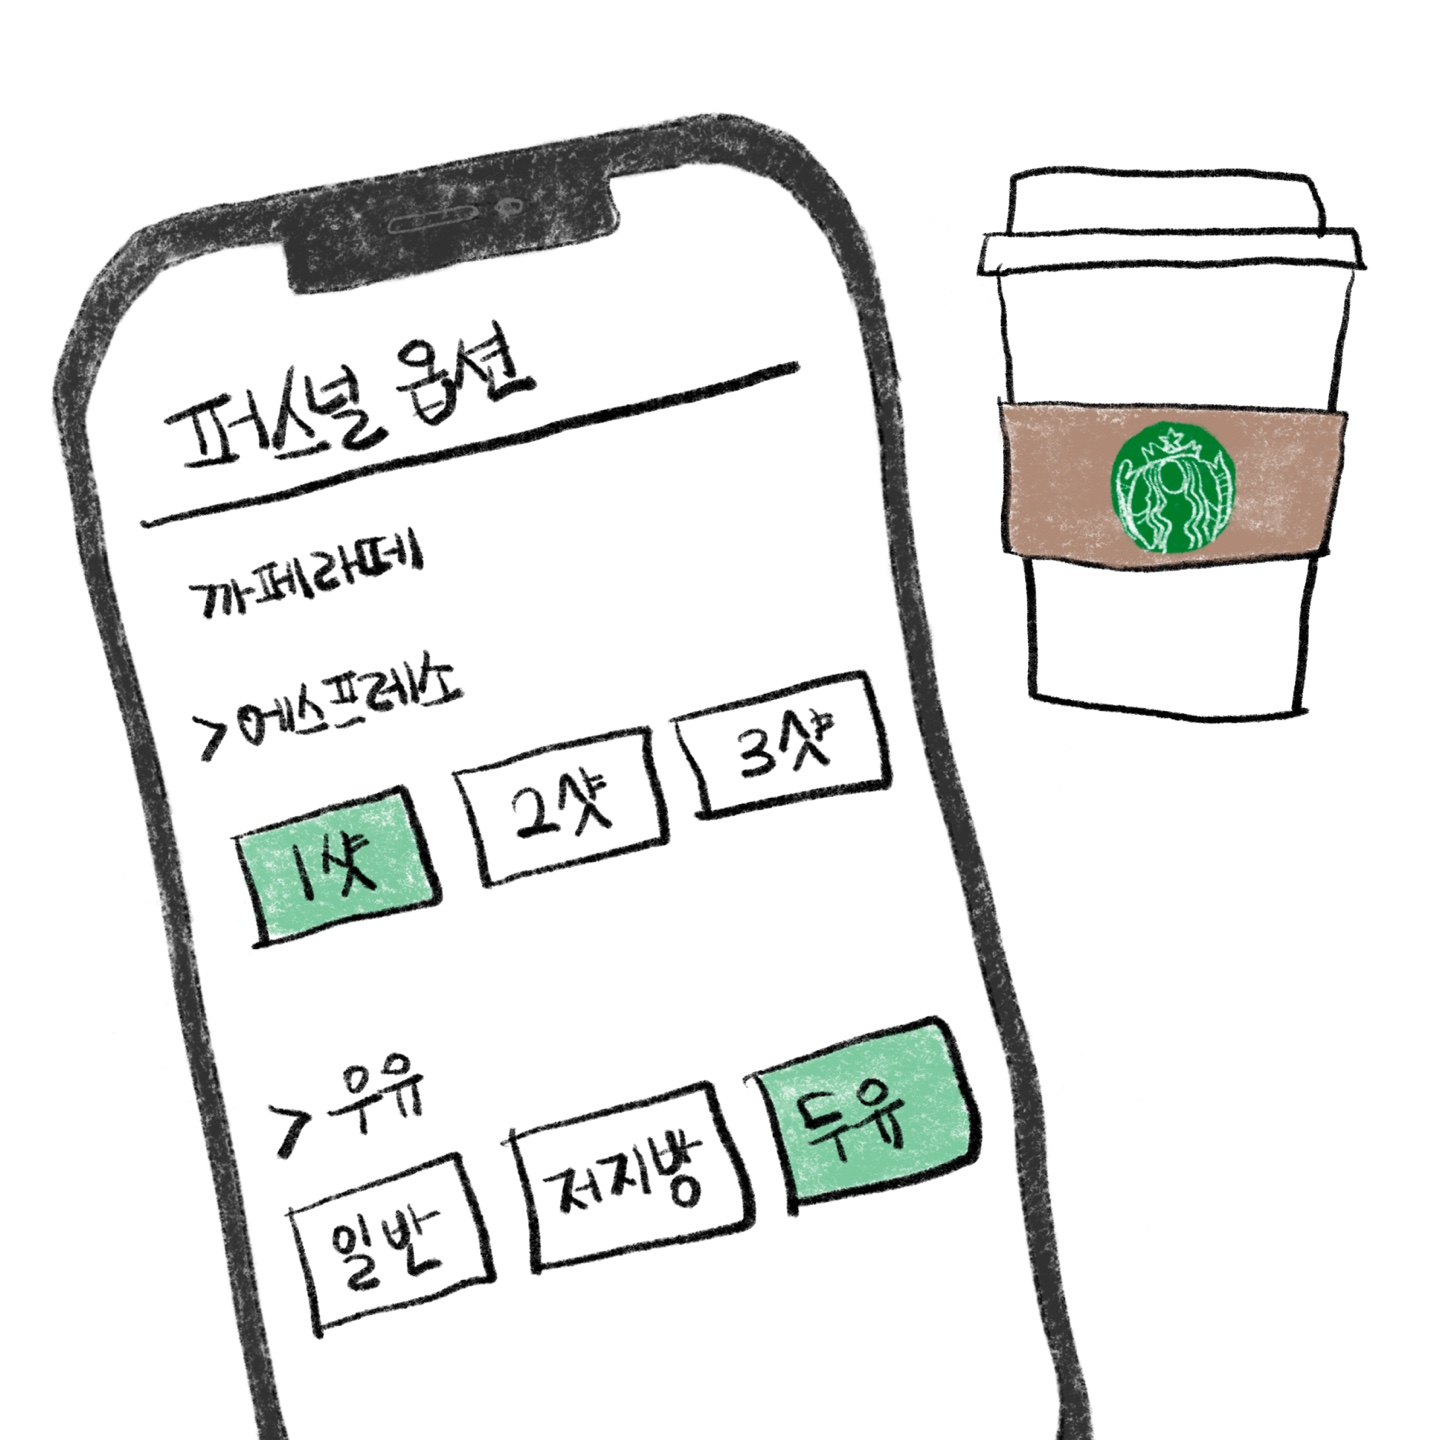 퍼스널 옵션
까페라떼
>에스프레소
1샷 2샷 3샷
>우유
일반 저지방 두유